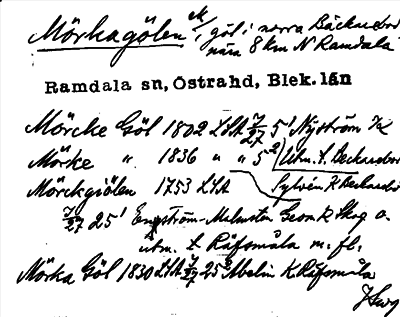 Mörkagölen ek/, göl i norra Bäckarbo
nära 8 km N Ramdala
Ramdala sn, Östrahd, Blek. län
Mörcke Göl 1802 LSA 7/27 5¹ Nyström K
Mörke " 1836 " " 5² Utm. t. Beckarbo
Mörckgiölen 1753 LSA Sylvén K Beckarbo
7/27 25¹ Engström-Malmsten Geom k Skog o.
utm. t Räfsmåla m. fl.
Mörka Göl 1830 LSA 7/27 25² Abelin K Räfsmåla